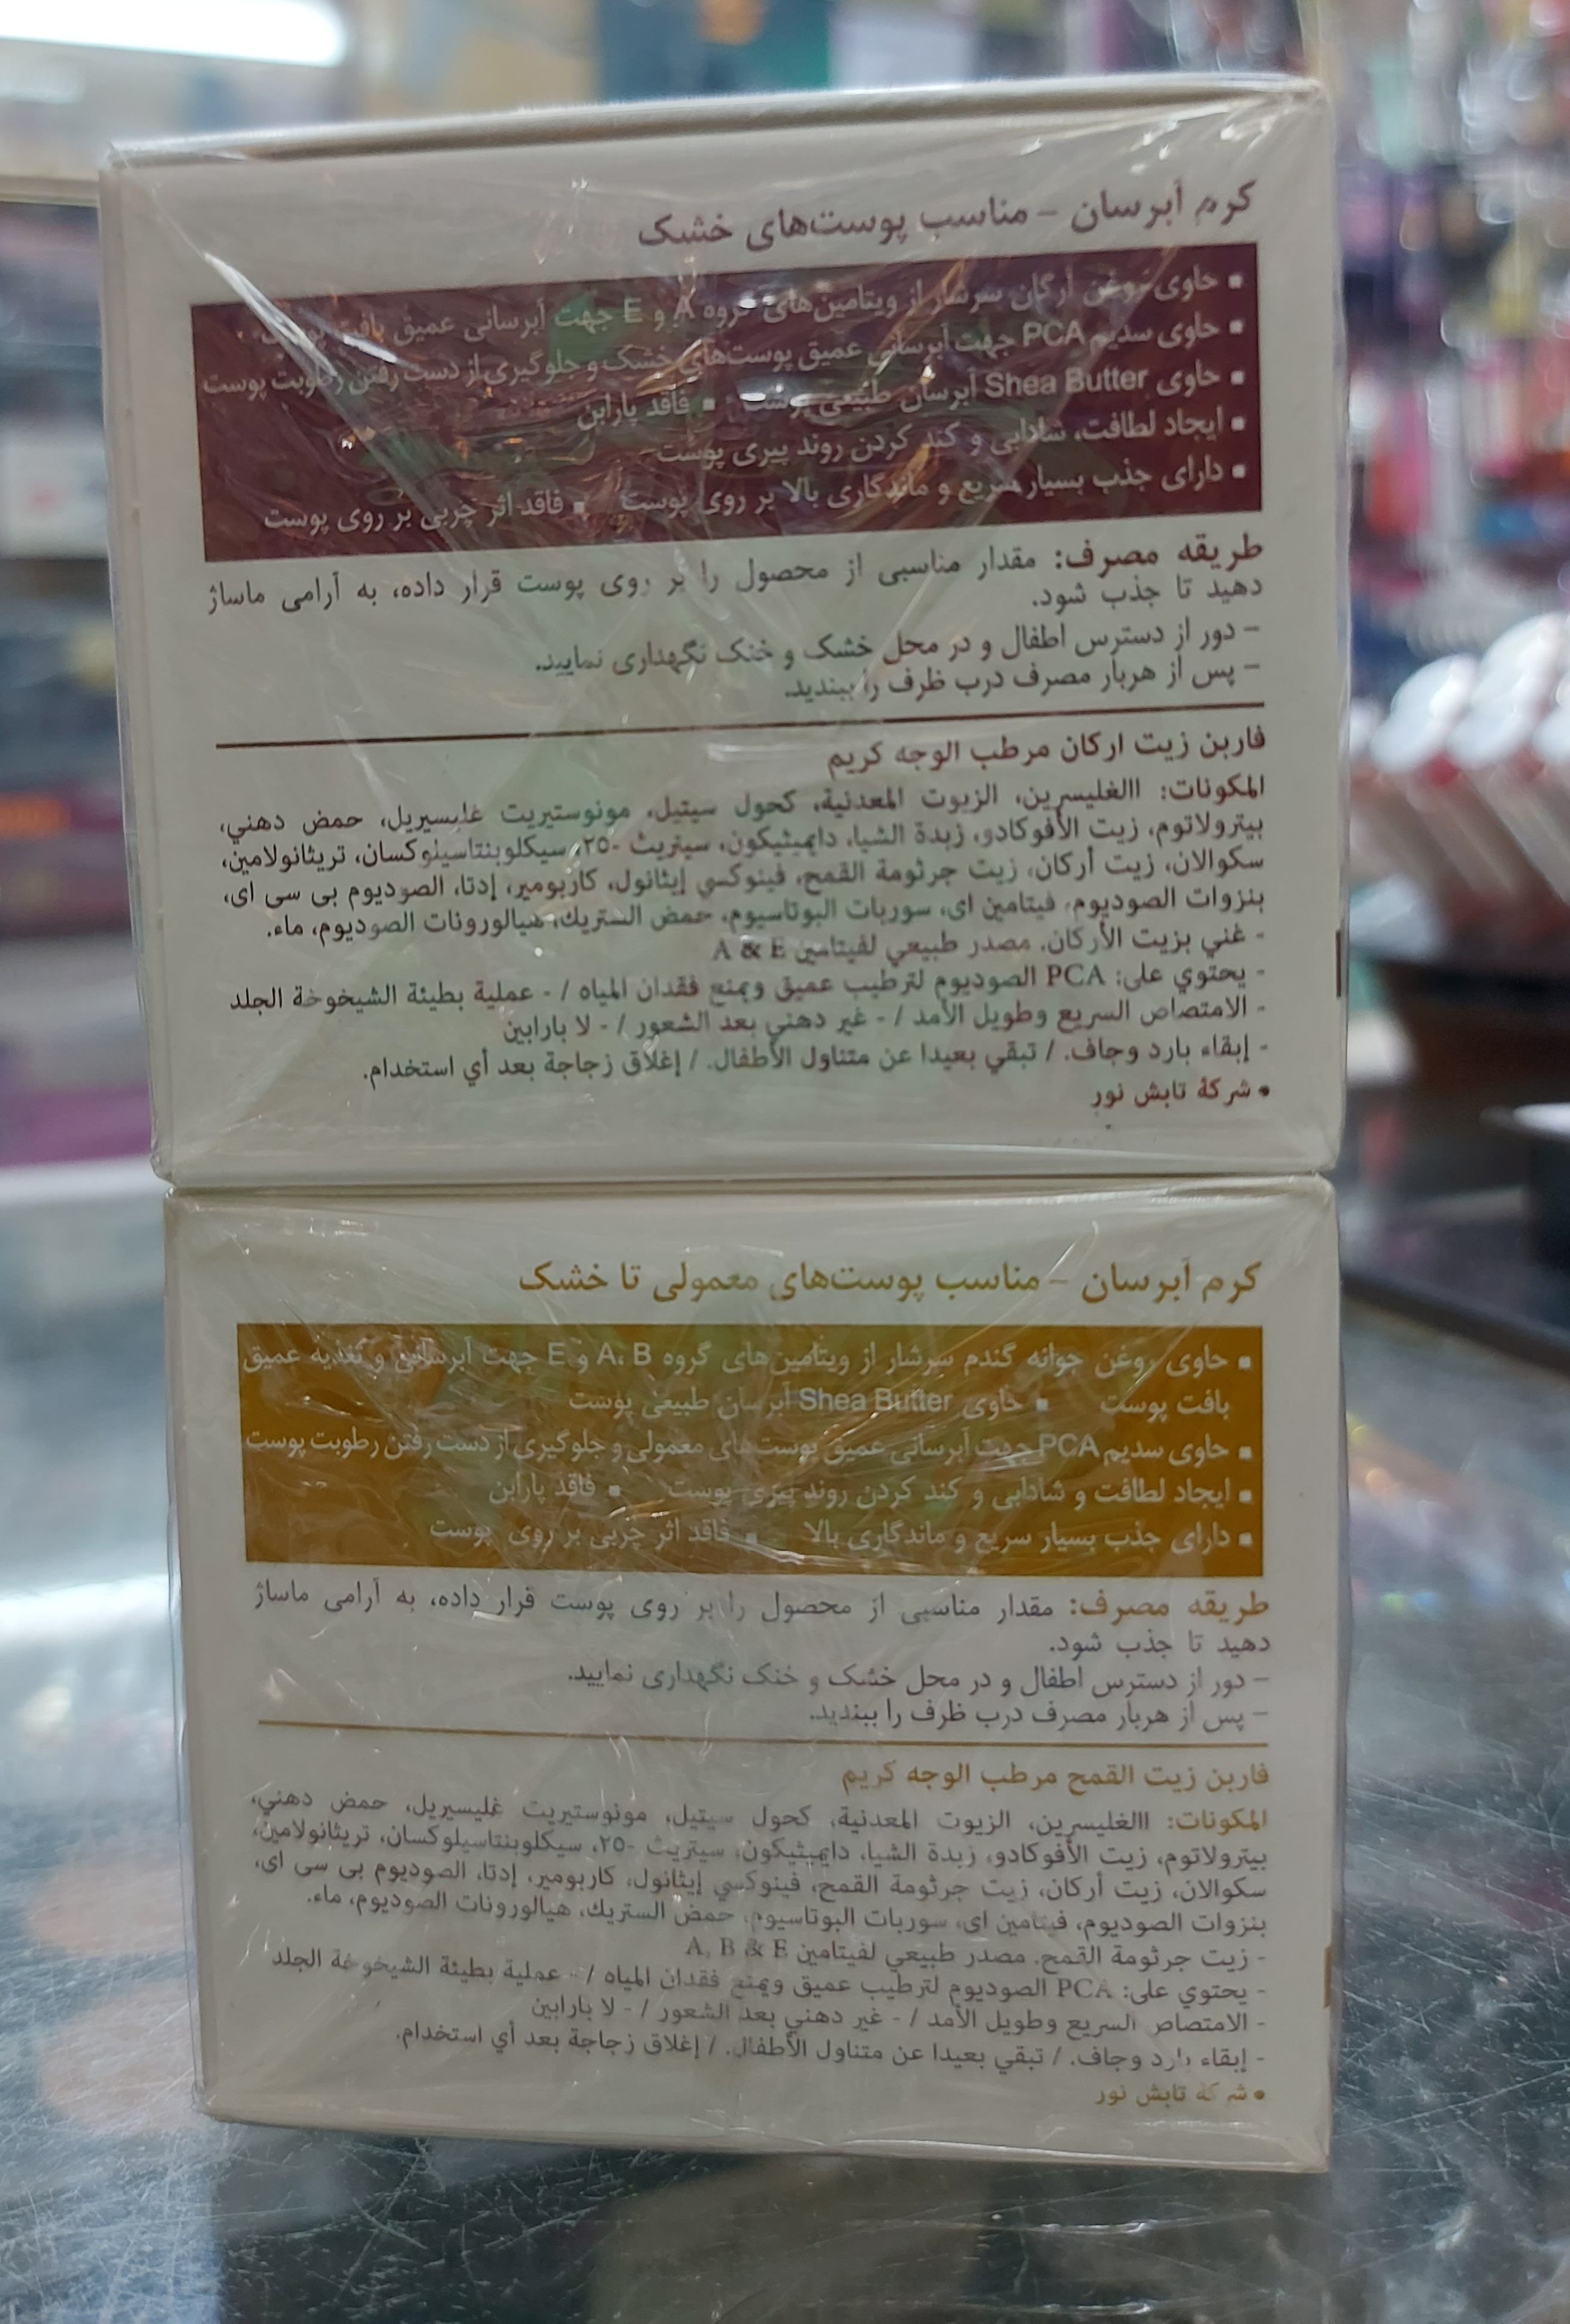 کرم آبرسان – مناسب پوست‌های خشک
▪ حاوی روغن آرگان سرشار از ویتامین‌های گروه A و E جهت آبرسانی عمیق بافت پوست
▪ حاوی سدیم PCA جهت آبرسانی عمیق پوست‌های خشک و جلوگیری از دست رفتن رطوبت پوست
▪ حاوی Shea Butter آبرسان طبیعی پوست ▪ فاقد پارابن
▪ ایجاد لطافت، شادابی و کند کردن روند پیری پوست
▪ دارای جذب بسیار سریع و ماندگاری بالا بر روی پوست ▪ فاقد اثر چربی بر روی پوست
طریقه مصرف: مقدار مناسبی از محصول را بر روی پوست قرار داده، به آرامی ماساژ
دهید تا جذب شود.
– دور از دسترس اطفال و در محل خشک و خنک نگهداری نمایید.
– پس از هربار مصرف درب ظرف را ببندید.
فاربن زیت ارکان مرطب الوجه کریم
المكونات: االغليسرين، الزيوت المعدنية، كحول سيتيل، مونوستيريت غليسيريل، حمض دهني،
بيترولاتوم، زيت الأفوكادو، زبدة الشيا، دايميثيكون، سيتريث -٢٥، سيكلوبنتاسيلوكسان، تريثانولامين،
سكوالان، زيت أركان، زيت جرثومة القمح، فينوكسي إيثانول، كاربومير، إدتا، الصوديوم بی سی ای،
بنزوات الصوديوم، فيتامين ای، سوربات البوتاسيوم، حمض الستريك، هيالورونات الصوديوم، ماء.
- غني بزيت الأركان. مصدر طبيعي لفيتامين A & E
- يحتوي على: PCA الصوديوم لترطيب عميق ويمنع فقدان المياه / - عملية بطيئة الشيخوخة الجلد
- الامتصاص السريع وطويل الأمد / - غير دهني بعد الشعور / - لا بارابين
- إبقاء بارد وجاف. / تبقي بعيدا عن متناول الأطفال. / إغلاق زجاجة بعد أي استخدام.
• شركة تابش نور
کرم آبرسان – مناسب پوست‌های معمولی تا خشک
▪ حاوی روغن جوانه گندم سرشار از ویتامین‌های گروه A، B و E جهت آبرسانی و تغذیه عمیق
بافت پوست ▪ حاوی Shea Butter آبرسان طبیعی پوست
▪ حاوی سدیم PCA جهت آبرسانی عمیق پوست‌های معمولی و جلوگیری از دست رفتن رطوبت پوست
▪ ایجاد لطافت و شادابی و کند کردن روند پیری پوست ▪ فاقد پارابن
▪ دارای جذب بسیار سریع و ماندگاری بالا ▪ فاقد اثر چربی بر روی پوست
طریقه مصرف: مقدار مناسبی از محصول را بر روی پوست قرار داده، به آرامی ماساژ
دهید تا جذب شود.
– دور از دسترس اطفال و در محل خشک و خنک نگهداری نمایید.
– پس از هربار مصرف درب ظرف را ببندید.
فاربن زیت القمح مرطب الوجه کریم
المكونات: االغليسرين، الزيوت المعدنية، كحول سيتيل، مونوستيريت غليسيريل، حمض دهني،
بيترولاتوم، زيت الأفوكادو، زبدة الشيا، دايميثيكون، سيتريث -٢٥، سيكلوبنتاسيلوكسان، تريثانولامين،
سكوالان، زيت أركان، زيت جرثومة القمح، فينوكسي إيثانول، كاربومير، إدتا، الصوديوم بی سی ای،
بنزوات الصوديوم، فيتامين ای، سوربات البوتاسيوم، حمض الستريك، هيالورونات الصوديوم، ماء.
- زيت جرثومة القمح. مصدر طبيعي لفيتامين A, B & E
- يحتوي على: PCA الصوديوم لترطيب عميق ويمنع فقدان المياه / - عملية بطيئة الشيخوخة الجلد
- الامتصاص السريع وطويل الأمد / - غير دهني بعد الشعور / - لا بارابين
- إبقاء بارد وجاف. / تبقي بعيدا عن متناول الأطفال. / إغلاق زجاجة بعد أي استخدام.
• شركة تابش نور